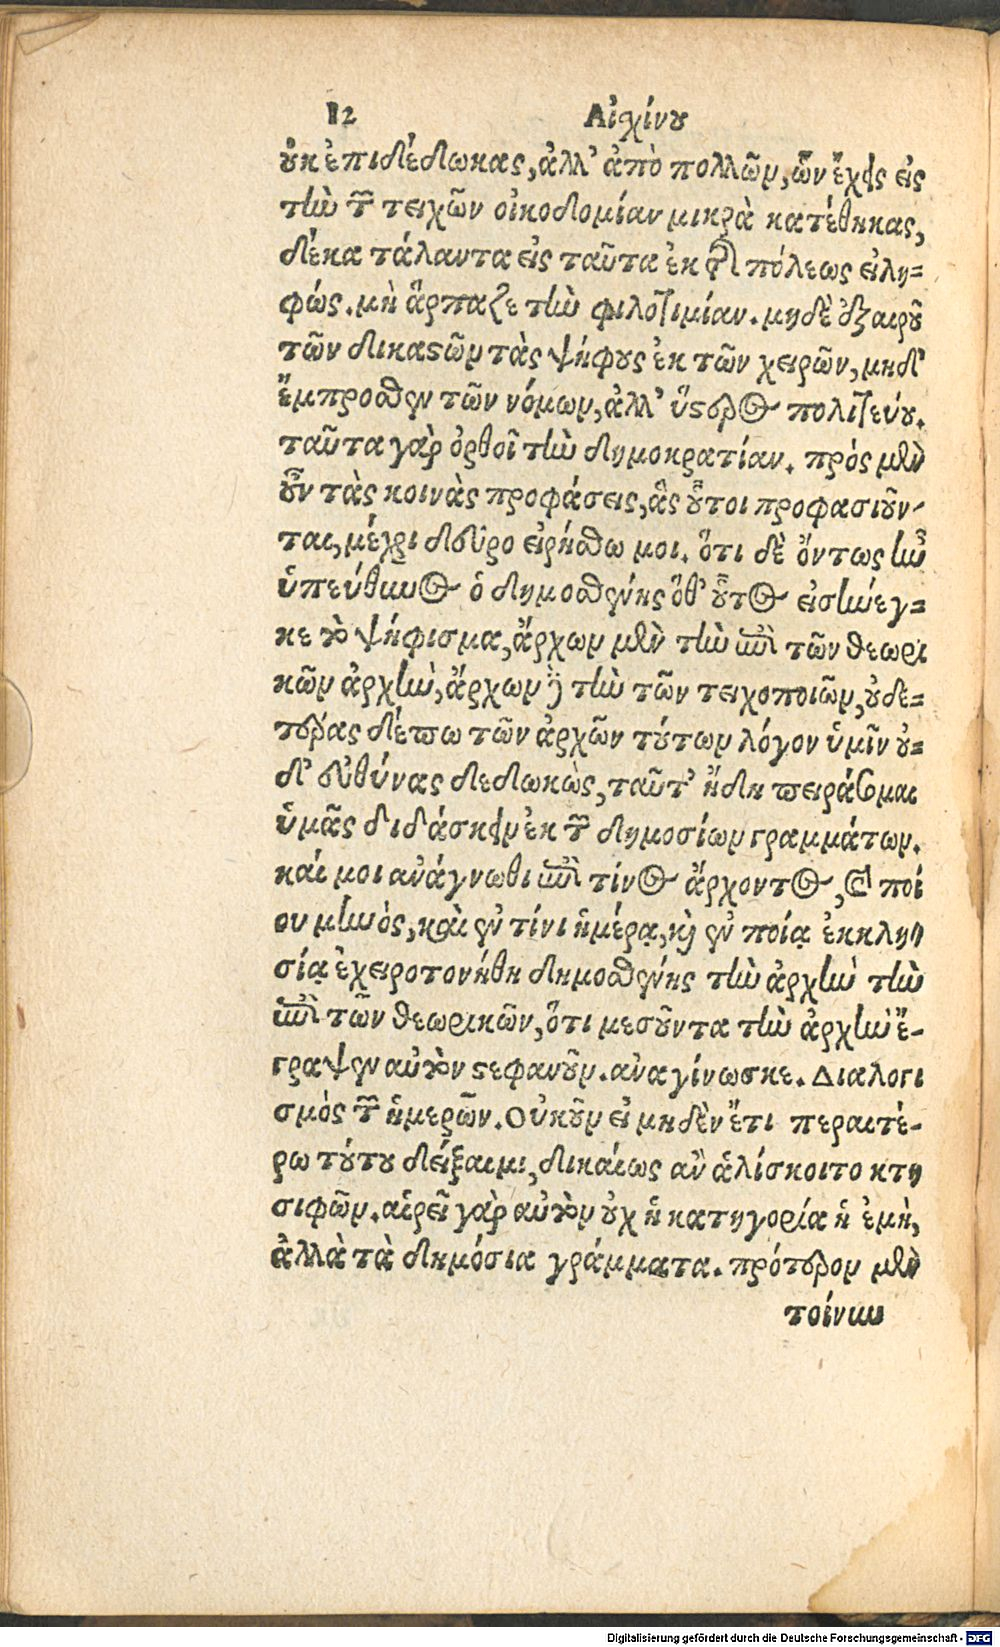 12 Αἰσχίνου
οὐκ ἐπιδέδωκας, ἀλλ' ἀπὸ πολλῶν, ὧν ἔχεις εἰς
τὴν τῶν τειχῶν οἰκοδομίαν μικρὰ κατέθηκας,
δέκα τάλαντα εἰς ταῦτα ἐκ τῆς πόλεως εἰλη-
φώς. μὴ ἅρπαζε τὴν φιλοτιμίαν. μηδὲ ἐξαιροῦ
τῶν δικαστῶν τὰς ψήφους ἐκ τῶν χειρῶν, μηδ'
ἔμπροσθεν τῶν νόμων, ἀλλ' ὕστερος πολιτεύου.
ταῦτα γὰρ ὀρθοῖ τὴν δημοκρατίαν. πρὸς μὲν
οὖν τὰς κοινὰς προφάσεις, ἃς οὗτοι προφασιοῦν-
ται, μέχρι δεῦρο εἰρήσθω μοι. ὅτι δὲ ὄντως ἦν
ὑπεύθυνος ὁ δημοσθένης ὅθ' οὗτος εἰσήνεγ-
κε τὸ ψήφισμα, ἄρχων μὲν τὴν ἐπὶ τῶν θεωρι
κῶν ἀρχὴν, ἄρχων δὲ τὴν τῶν τειχοποιῶν, οὐδε-
τέρας δέπω τῶν ἀρχῶν τούτων λόγον ὑμῖν οὐ-
δ' εὐθύνας δεδωκὼς, ταῦτ' ἤδη πειράσομαι
ὑμᾶς διδάσκειν ἐκ τῶν δημοσίων γραμμάτων.
καί μοι ἀνάγνωθι ἐπὶ τίνος ἄρχοντος, καὶ ποί
ου μηνὸς, καὶ ἐν τίνι ἡμέρᾳ, καὶ ἐν ποίᾳ ἐκκλη
σίᾳ ἐχειροτονήθη δημοσθένης τὴν ἀρχὴν τὴν
ἐπὶ τῶν θεωρικῶν, ὅτι μεσοῦντα τὴν ἀρχὴν ἔ-
γραψεν αὐτὸν στεφανοῦν. ἀναγίνωσκε. Διαλογι
σμὸς τῶν ἡμερῶν. Οὐκοῦν εἰ μηδὲν ἔτι περαιτέ-
ρω τούτου δείξαιμι, δικαίως ἂν ἁλίσκοιτο κτη
σιφῶν. αἱρεῖ γὰρ αὐτὸν οὐχ ἡ κατηγορία ἡ ἐμὴ,
ἀλλὰ τὰ δημόσια γράμματα. πρότερον μὲν
τοίνυν
Digitalisierung gefördert durch die Deutsche Forschungsgemeinschaft - DFG